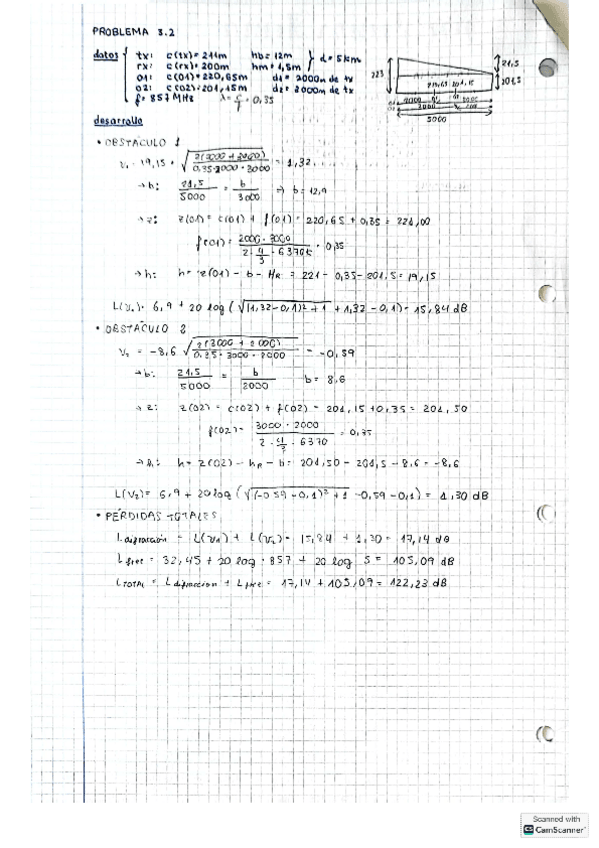 PROBLEMA 3.2
datos
tx: c(tx)= 211m hb= 12m
rx: c(rx)= 200m hm= 1,5m
d= 5km
01: c(01)= 220,65m d1= 2000m de tx
02: c(02)= 201,15m d2= 3000m de tx
f= 857 MHz = 0,35
223
21,5
201,5
5000
desarrollo
• OBSTÁCULO 1
V1= 19,15 · √ 2(2000 + 3000) / 0,35·2000·3000 = 1,32
→ b: 21,5 / 5000 = b / 3000 ⇒ b= 12,9
→ z: z(01)= c(01) + f(01)= 220,65 + 0,35 = 221,00
f(01)= 2000 · 3000 / 2 · 4/3 · 6370k = 0,35
→ h: h= z(01) - b - HR = 221 - 0,35 - 201,5 = 19,15
L(v1)= 6,9 + 20 log (√(1,32-0,1)²+1 + 1,32 - 0,1)= 15,84 dB
• OBSTÁCULO 2
V2 = -8,6 √ 2(3000 + 2000) / 0,35 · 3000 · 2000 = -0,59
→ b: 21,5 / 5000 = b / 2000 b= 8,6
→ z: z(02) = c(02) + f(02) = 201,15 + 0,35 = 201,50
f(02)= 3000 · 2000 / 2 · 4/3 · 6370 = 0,35
→ h: h= z(02) - hR - b= 201,50 - 201,5 - 8,6 = -8,6
L(V2)= 6,9 + 20 log (√(-0,59 - 0,1)² + 1 -0,59 - 0,1) = 1,30 dB
• PÉRDIDAS TOTALES
Ldifracción = L(v1) + L(v2)= 15,84 + 1,30 = 17,14 dB
Lfree = 32,45 + 20 log · 857 + 20 log 5 = 105,09 dB
LTOTAL = Ldifraccion + Lfree = 17,14 + 105,09 = 122,23 dB
Scanned with
CamScanner